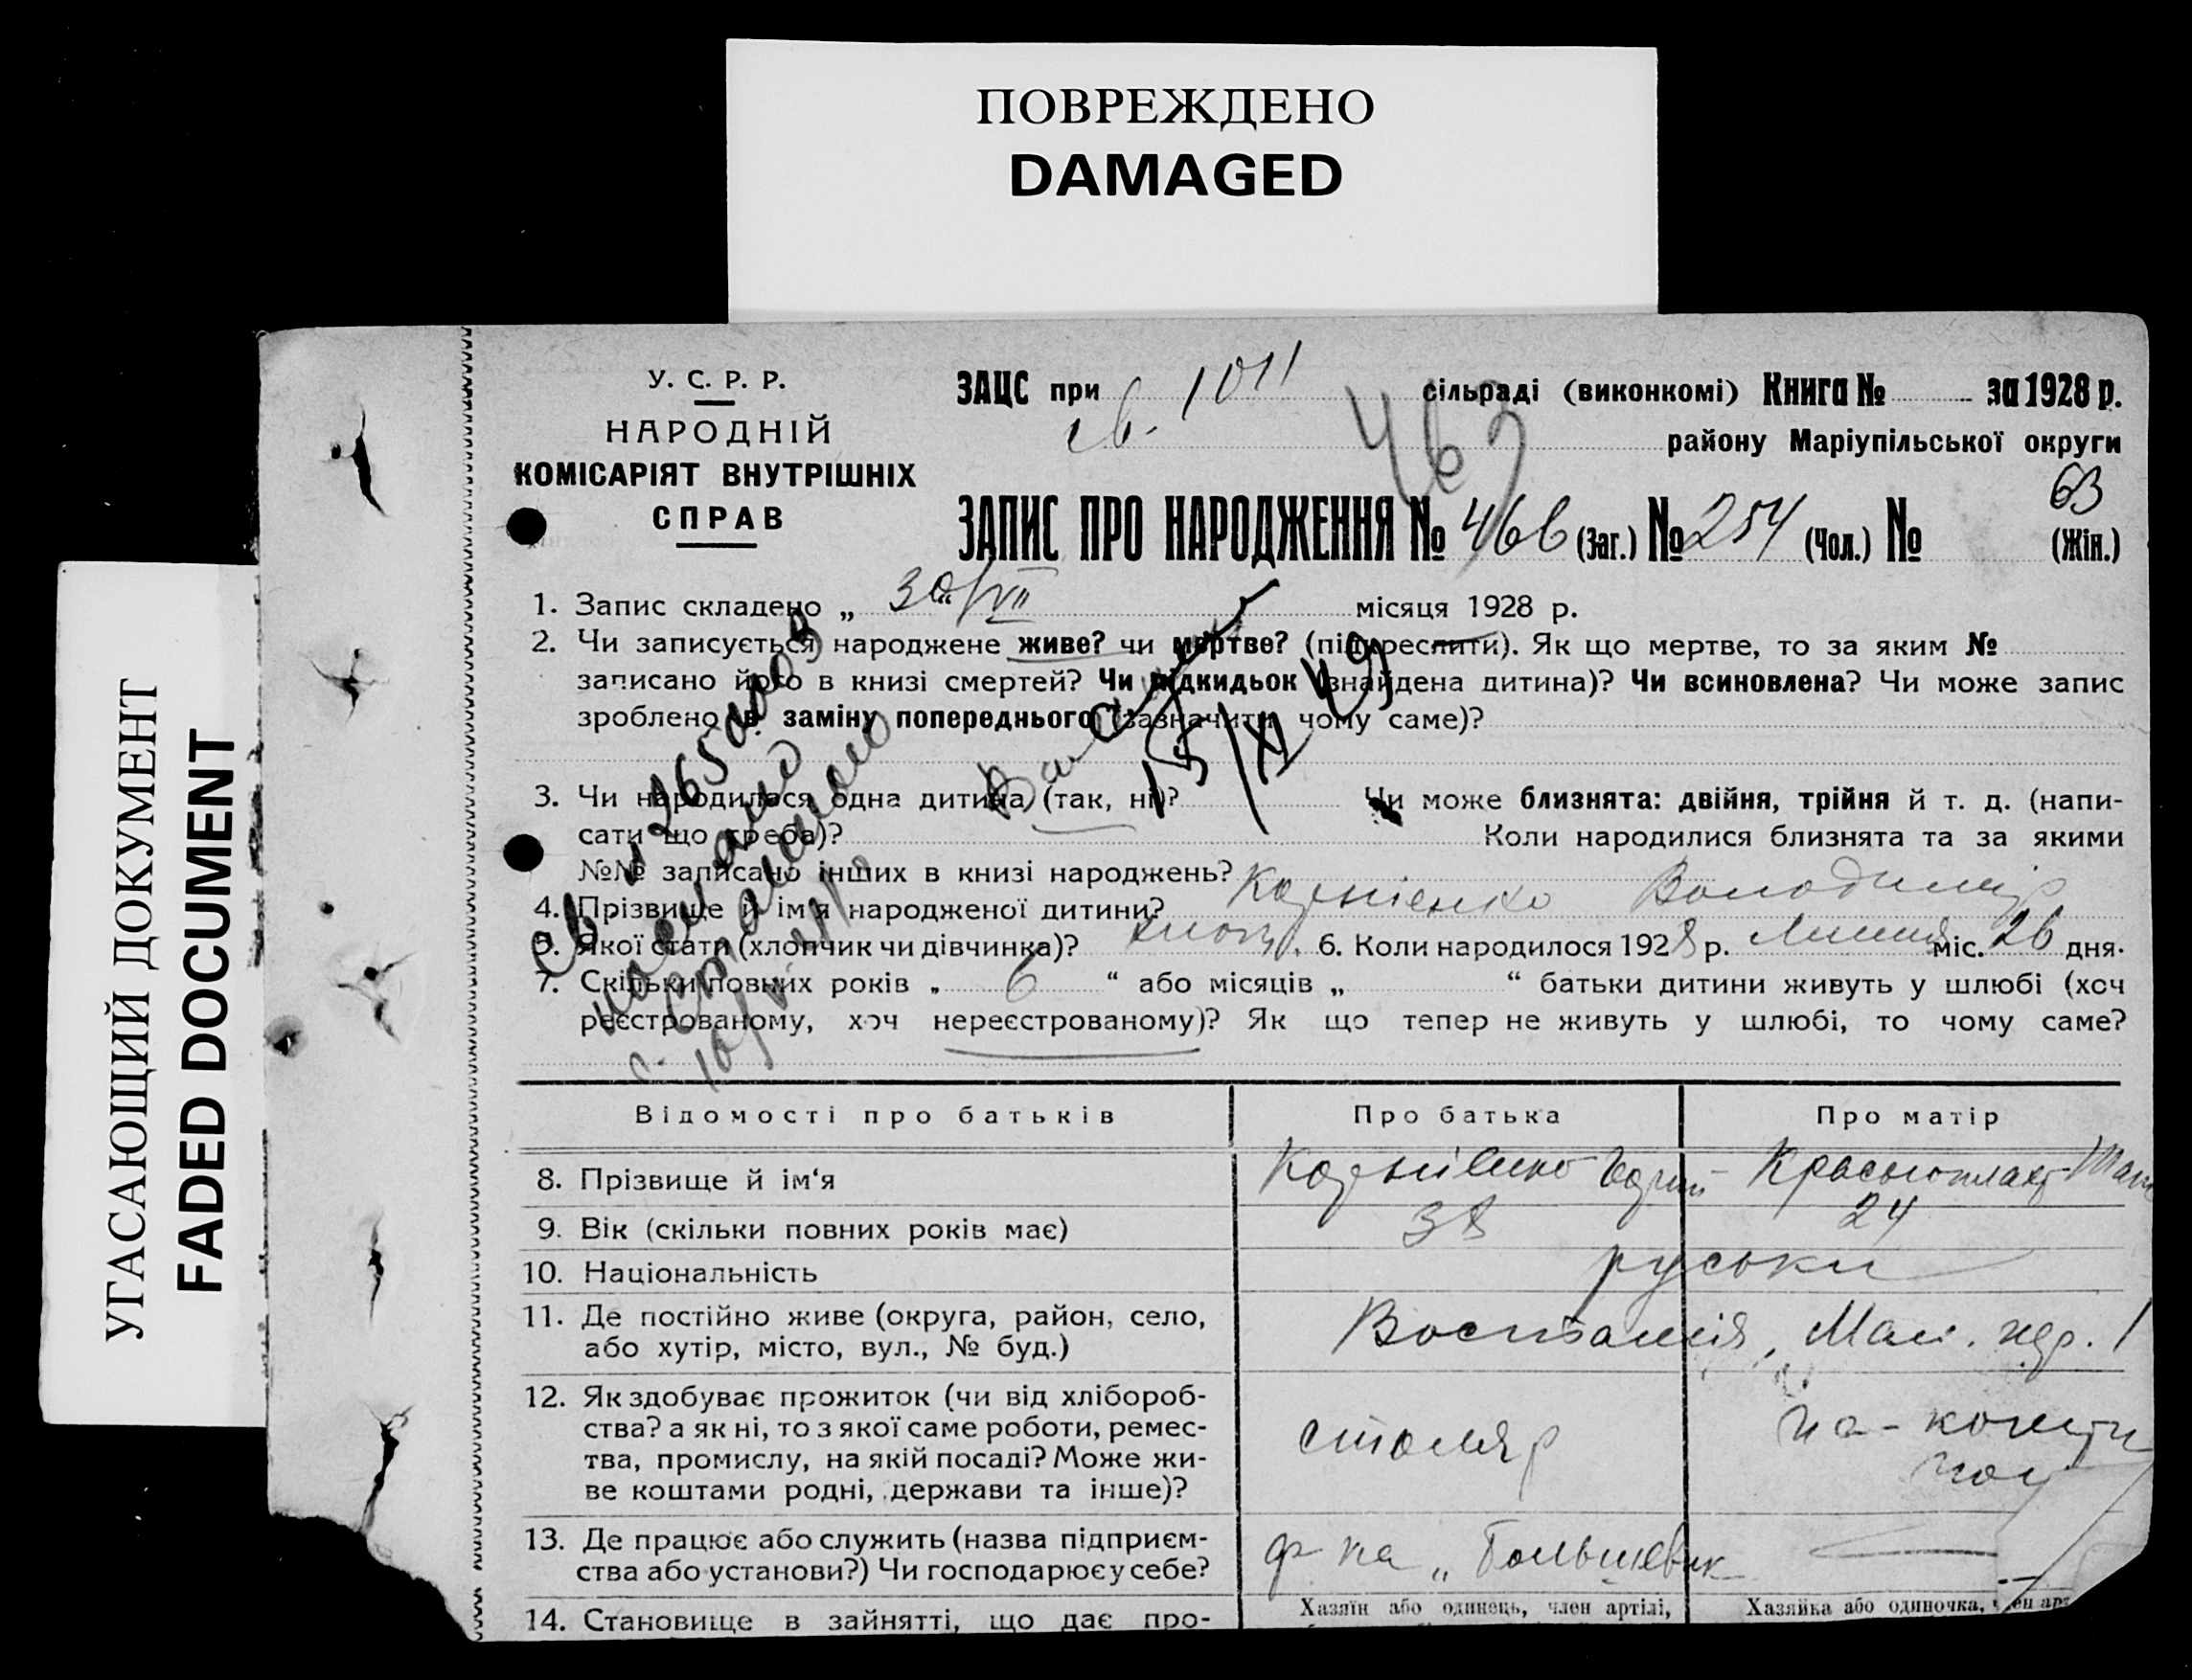 ПОВРЕЖДЕНО
DAMAGED
УГАСАЮЩИЙ ДОКУМЕНТ
FADED DOCUMENT
У. С. Р. Р.
НАРОДНІЙ
КОМІСАРІЯТ ВНУТРІШНІХ
СПРАВ
ЗАЦС при св. 1011 сільраді (виконкомі) Книга № за 1928 р.
району Маріупільської округи
63
ЗАПИС ПРО НАРОДЖЕННЯ № 466 (Заг.) № 254 (Чол.) № (Жін.)
1. Запис складено „ 30 “ VII місяця 1928 р.
2. Чи записується народжене живе? чи мертве? (підкреслити). Як що мертве, то за яким №
записано його в книзі смертей? Чи підкидьок (знайдена дитина)? Чи всиновлена? Чи може запис
зроблено в заміну попереднього (зазначити чому саме)?
15/XI 49
3. Чи народилася одна дитина (так, ні)? Чи може близнята: двійня, трійня й т. д. (напи-
сати що треба)? Коли народилися близнята та за якими
№№ записано інших в книзі народжень?
4. Прізвище й ім'я народженої дитини? Корнієнко Володимір
5. Якої стати (хлопчик чи дівчинка)? хлопч. 6. Коли народилося 1928 р. Липня міс. 26 дня.
7. Скільки повних років „ 6 “ або місяців „ “ батьки дитини живуть у шлюбі (хоч
реєстрованому, хоч нереєстрованому)? Як що тепер не живуть у шлюбі, то чому саме?
Відомості про батьків Про батька Про матір
8. Прізвище й ім‘я Корнієнко
9. Вік (скільки повних років має) 38 24
10. Національність руськи
11. Де постійно живе (округа, район, село,
або хутір, місто, вул., № буд.)
12. Як здобуває прожиток (чи від хлібороб-
ства? а як ні, то з якої саме роботи, ремес-
тва, промислу, на якій посаді? Може жи-
ве коштами родні, держави та інше)?
столяр
13. Де працює або служить (назва підприєм-
ства або установи?) Чи господарює у себе?
ф-ка „ Большевик
14. Становище в зайнятті, що дає про-
Хазяїн або одинець, член артілі,
Хазяйка або одиночка,